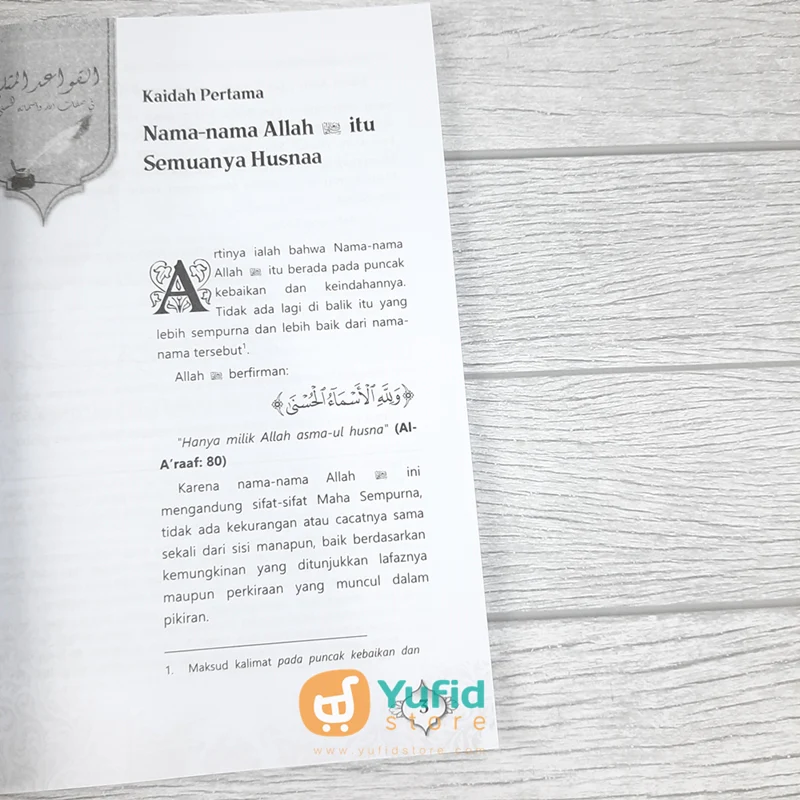 القواعد المثلى
في صفات الله وأسمائه الحسنى
Kaidah Pertama
Nama-nama Allah ﷻ itu
Semuanya Husnaa
Artinya ialah bahwa Nama-nama
Allah ﷻ itu berada pada puncak
kebaikan dan keindahannya.
Tidak ada lagi di balik itu yang
lebih sempurna dan lebih baik dari nama-
nama tersebut¹.
Allah ﷻ berfirman:
﴿وَلِلَّهِ ٱلْأَسْمَآءُ ٱلْحُسْنَىٰ﴾
"Hanya milik Allah asma-ul husna" (Al-
A'raaf: 80)
Karena nama-nama Allah ﷻ ini
mengandung sifat-sifat Maha Sempurna,
tidak ada kekurangan atau cacatnya sama
sekali dari sisi manapun, baik berdasarkan
kemungkinan yang ditunjukkan lafaznya
maupun perkiraan yang muncul dalam
pikiran.
1. Maksud kalimat pada puncak kebaikan dan
3
Yufid
store
www.yufidstore.com